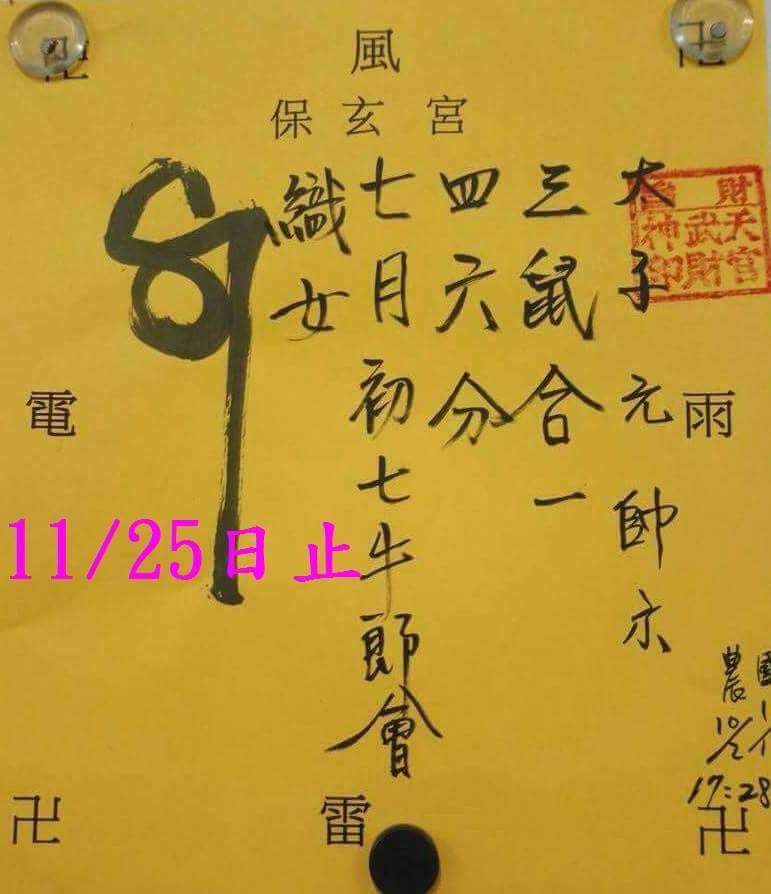 卍 風 卍
保玄宮
太子元帥示
三鼠合一
四六分
七月初七牛郎會
織女
電 雨
11/25日止
農
17:28
卍 雷 卍
財天官
武財
神印